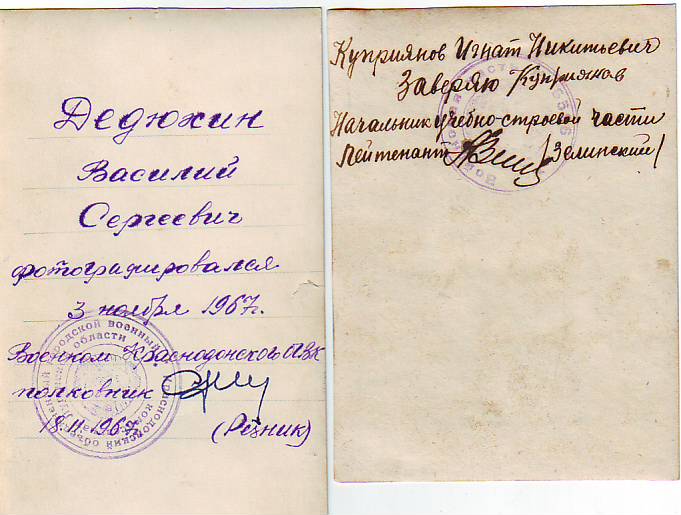 Дедюхин
Василий
Сергеевич
фотографировался
3 ноября 1967г.
Военком Краснодонского ОГВК
полковник
18.11.1967г.
(Резник)
Куприянов Игнат Никитьевич
Заверяю Куприянов
Начальник учебно-строевой части
Лейтенант /Зелинский/